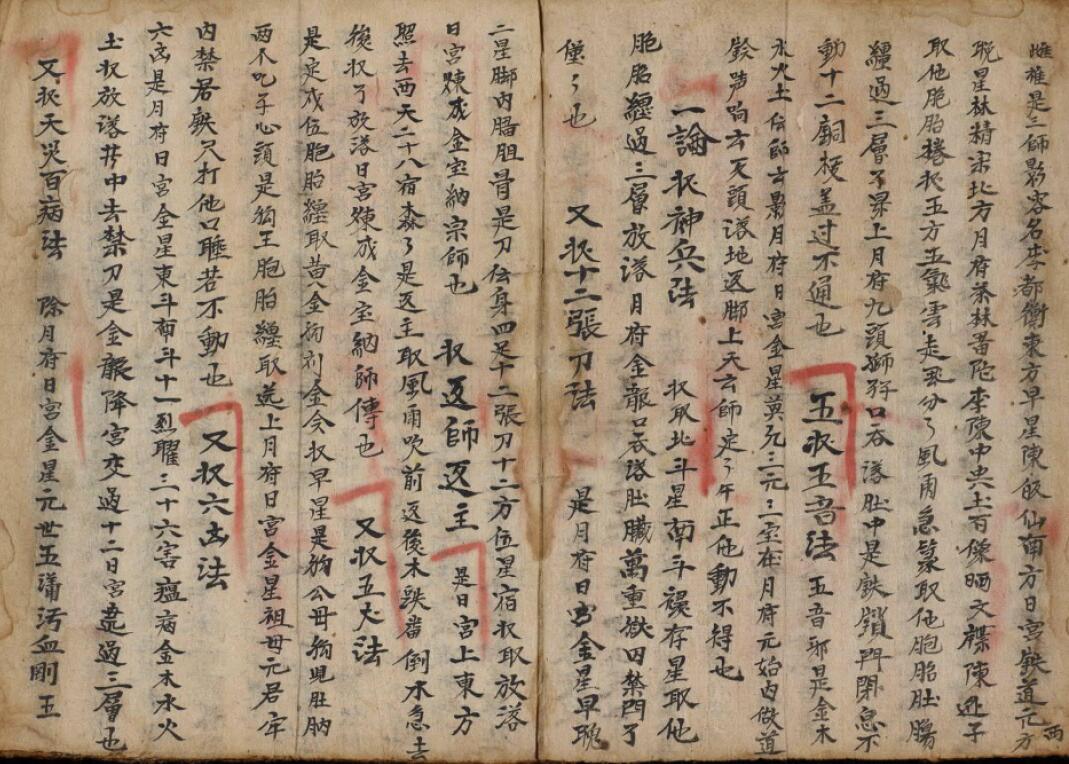 雌雄是三師影容名李都衛東方早星陳皈仙南方日宮鉄道元方西
晚星林精宋北方月府茶林黃陀李陳中央土百僚晒文禖陳近子
取他胞胎棬収五方五氣雲走飛分了風甬急筞取他胞胎肚腸
纏過三層了梁上月府九頭獅狩口吞隊肚中是鉄鎖門閉急不
動十二銅板盖过不通也　五收五吾法　五吾耶是金木
水火土伝師去影月府日宮金星英兄三元三室在月府元始內做道
鈴声鳴去天頭落地返脚上天去師定了午正他動不得也
一論収神兵法　収取北斗星南斗禄存星取他
胞胎纏过三層放落月府金龍口吞落肚臟萬重獄囚禁門了
堡了也　又収十二張刀法　是月府日宮金星早晚
二星脚內腸胆骨是刀伝身四足十二張刀十二方伍星宿収取放落
日宮煉成金宝納宗師也　収返師返主　是日宮上東方
照去西天二十八宿森了是返主取風雨吹前返後木跌番倒水急去
後収了放落日宮煉成金宝納師傳也　又収五犬法
是定成伍胞胎纏取黄金狗刹金令収早星是狗公母狗晚肚肭
两个吃子心頭是狗王胞胎纏取送上月府日宮金星祖母元君牢
內禁君鉄尺打他口睡苦不動也　又収六凶法
六凶是月府日宮金星東斗南斗十一烈曜三十六害瘟病金木水火
土収放落井中去禁刀是金龍降宮交過十二日宮走過三層也
又収天災百病法　除月府日宮金星元世五蒲汚血剛王